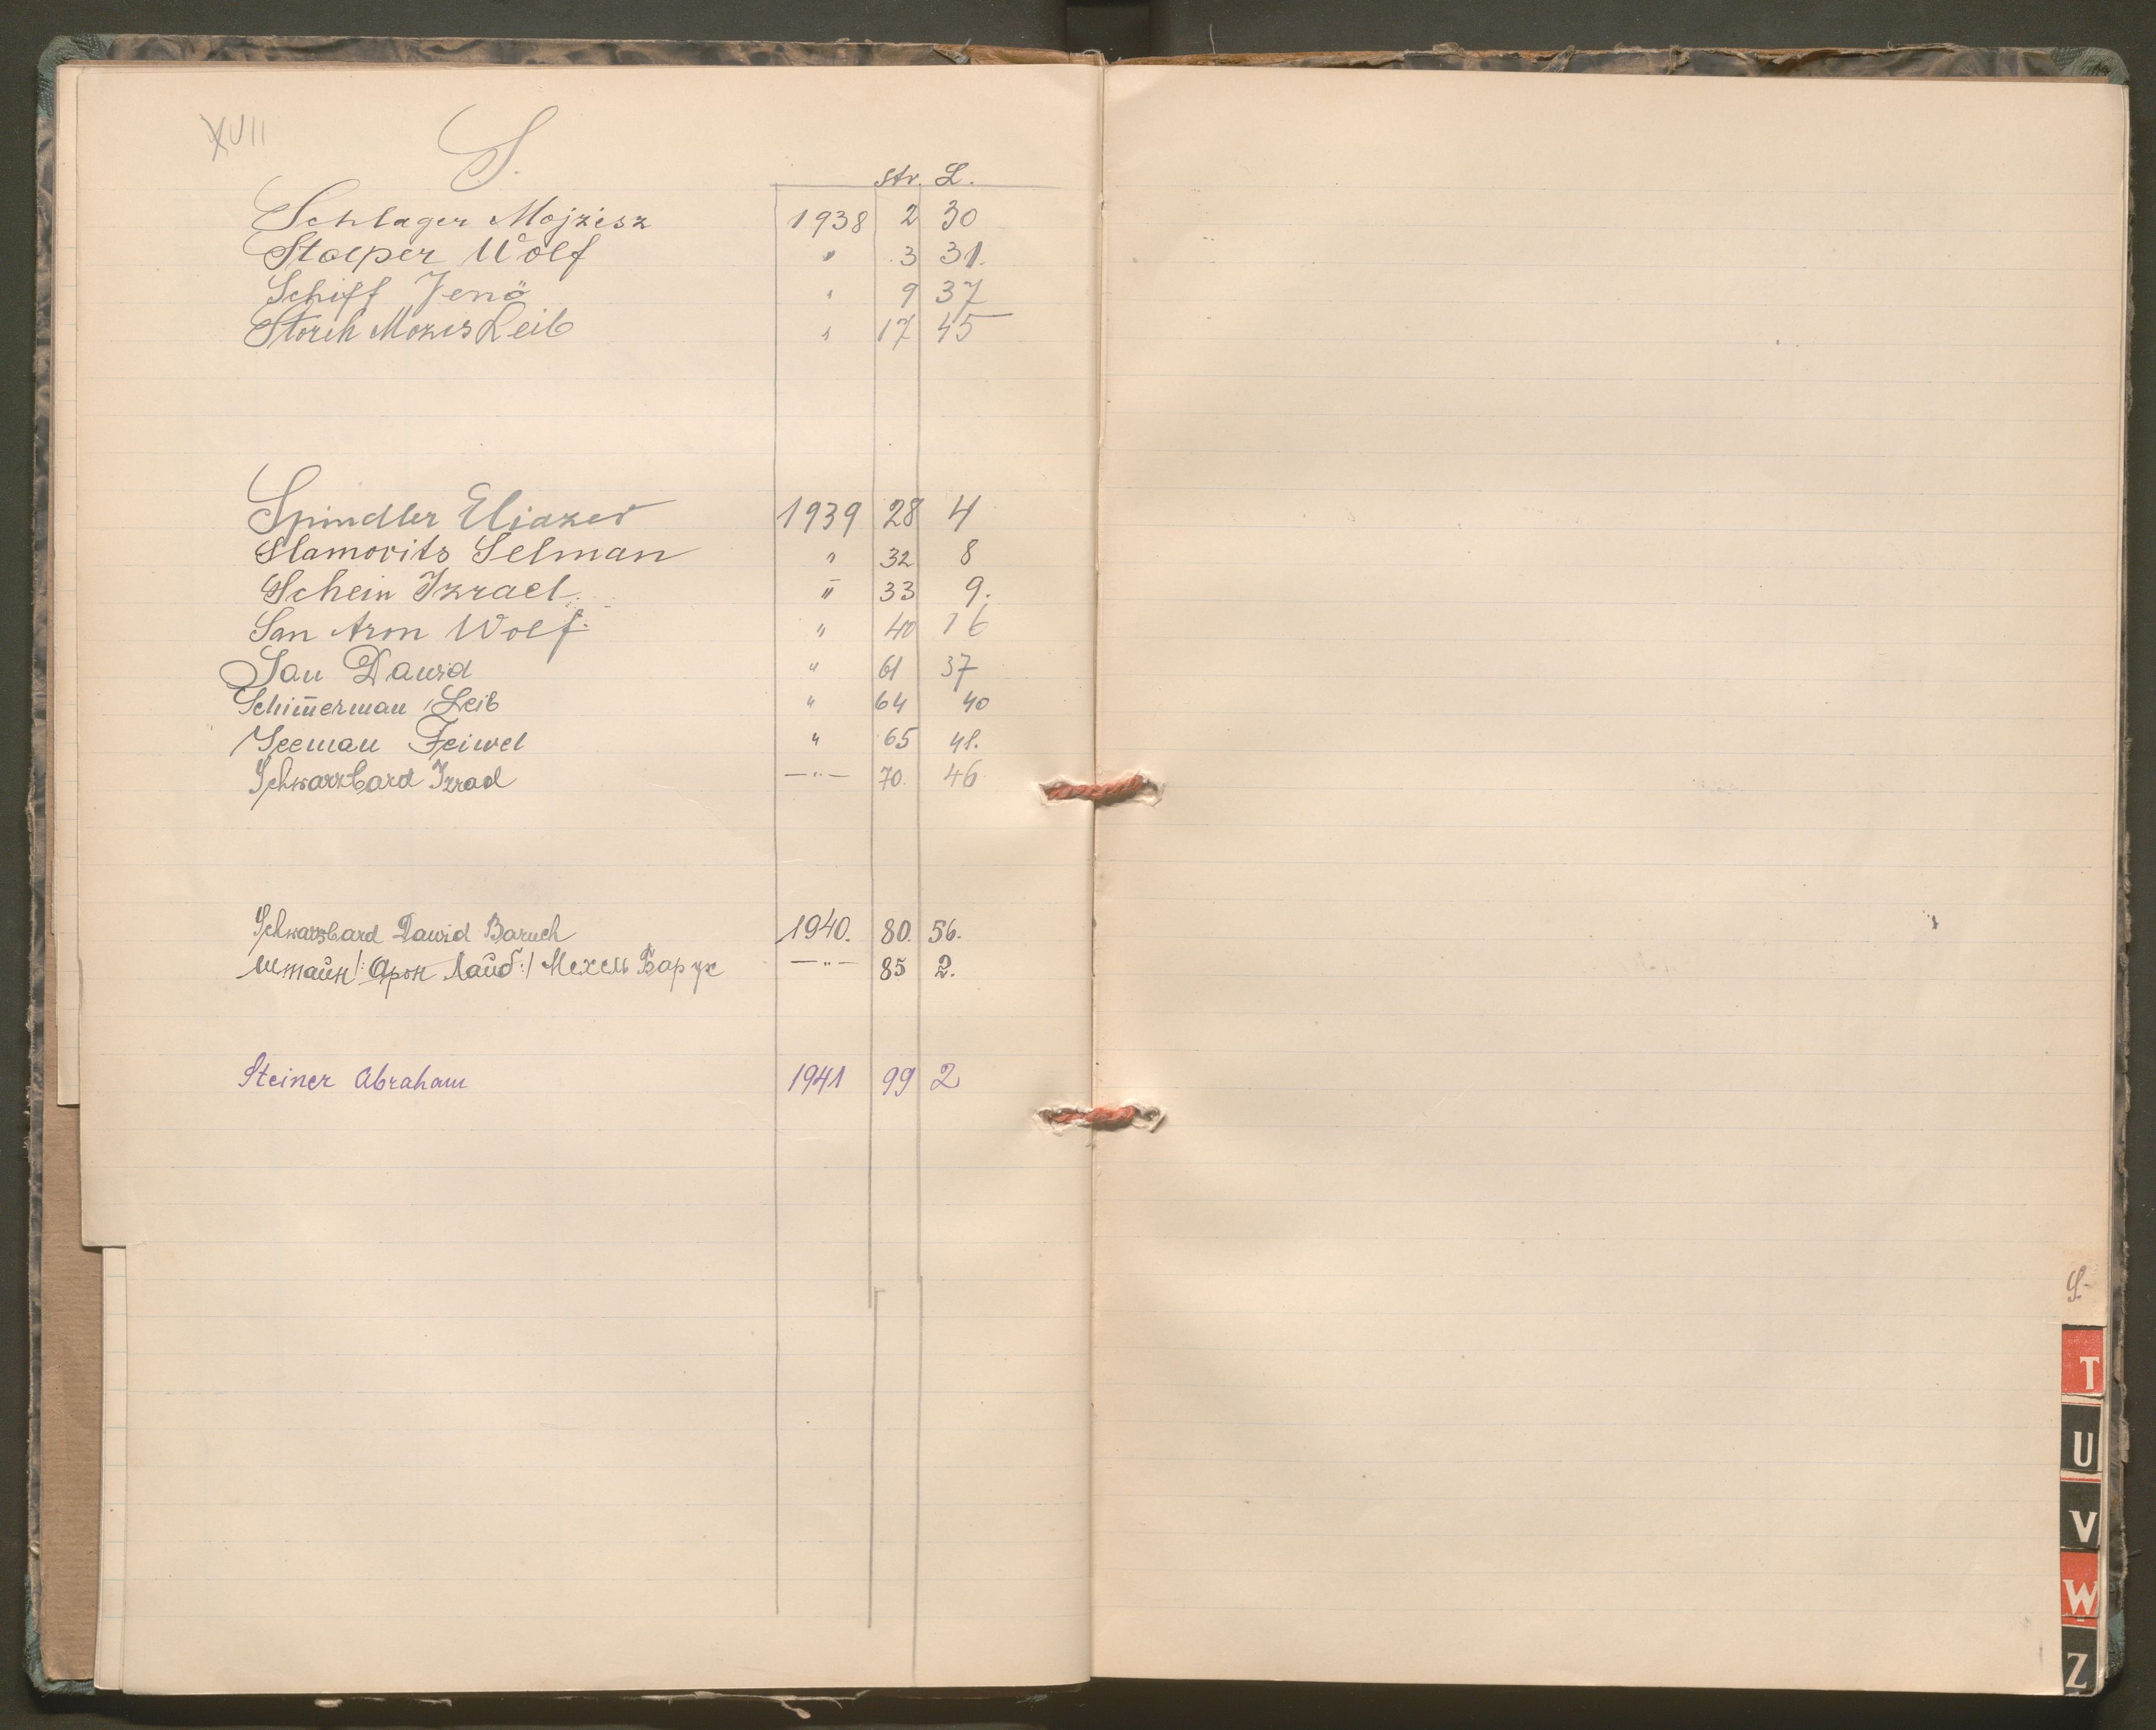 XVII
S.
str. L.
Schlager Mojzisz 1938 2 30
Stolper Wolf " 3 31.
Schiff Jenö " 9 37
Storch Mozes Leib " 17 45
Spindler Eliazer 1939 28 4
Slamovits Selman " 32 8
Schein Izrael " 33 9.
San Aron Wolf " 40 16
Sau Dawid " 61 37
Schim̄erman Leib " 64 40
Seeman Feiwel " 65 41.
Schwarzbard Izrael —"— 70. 46
Schwarzbard Dawid Baruch 1940. 80. 56.
Штайн /: Арон Лайб :/ Мехель Барух —"— 85 2.
Steiner Abraham 1941 99 2
S.
T
U
V
W
Z